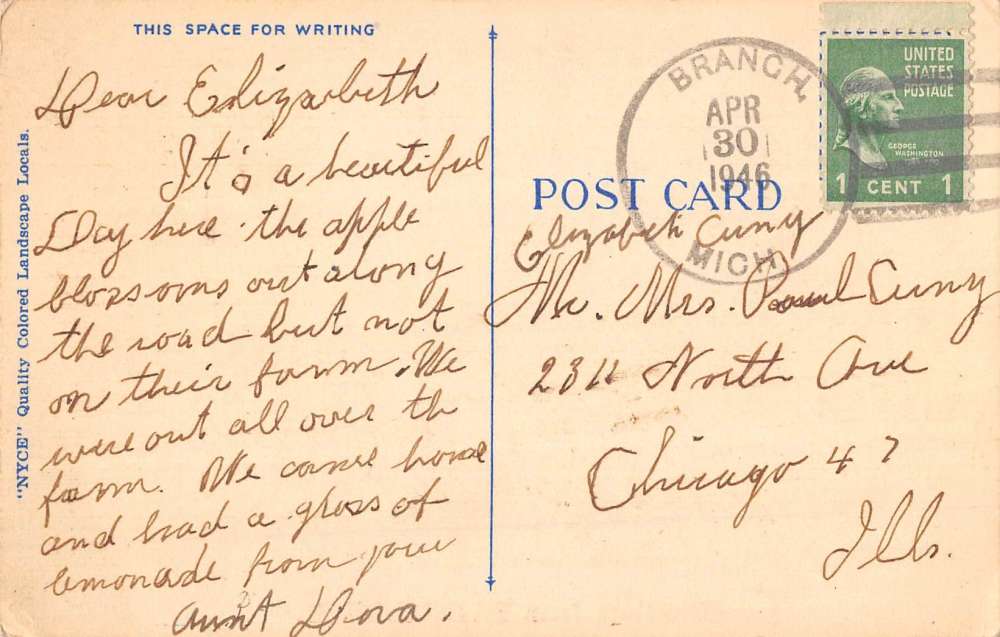 THIS SPACE FOR WRITING
Dear Elizabeth
It's a beautiful
Day here the apple
blossoms out along
the road but not
on their farm. We
were out all over the
farm. We came home
and had a glass of
lemonade from your
aunt Dora.
"NYCE" Quality Colored Landscape Locals.
BRANCH,
APR
30
1946
MICH
UNITED
STATES
POSTAGE
GEORGE
WASHINGTON
1 CENT 1
POST CARD
Elizabeth Cuny
Mr. Mrs. Paul Cuny
2311 North Ave
Chicago 47
Ills.